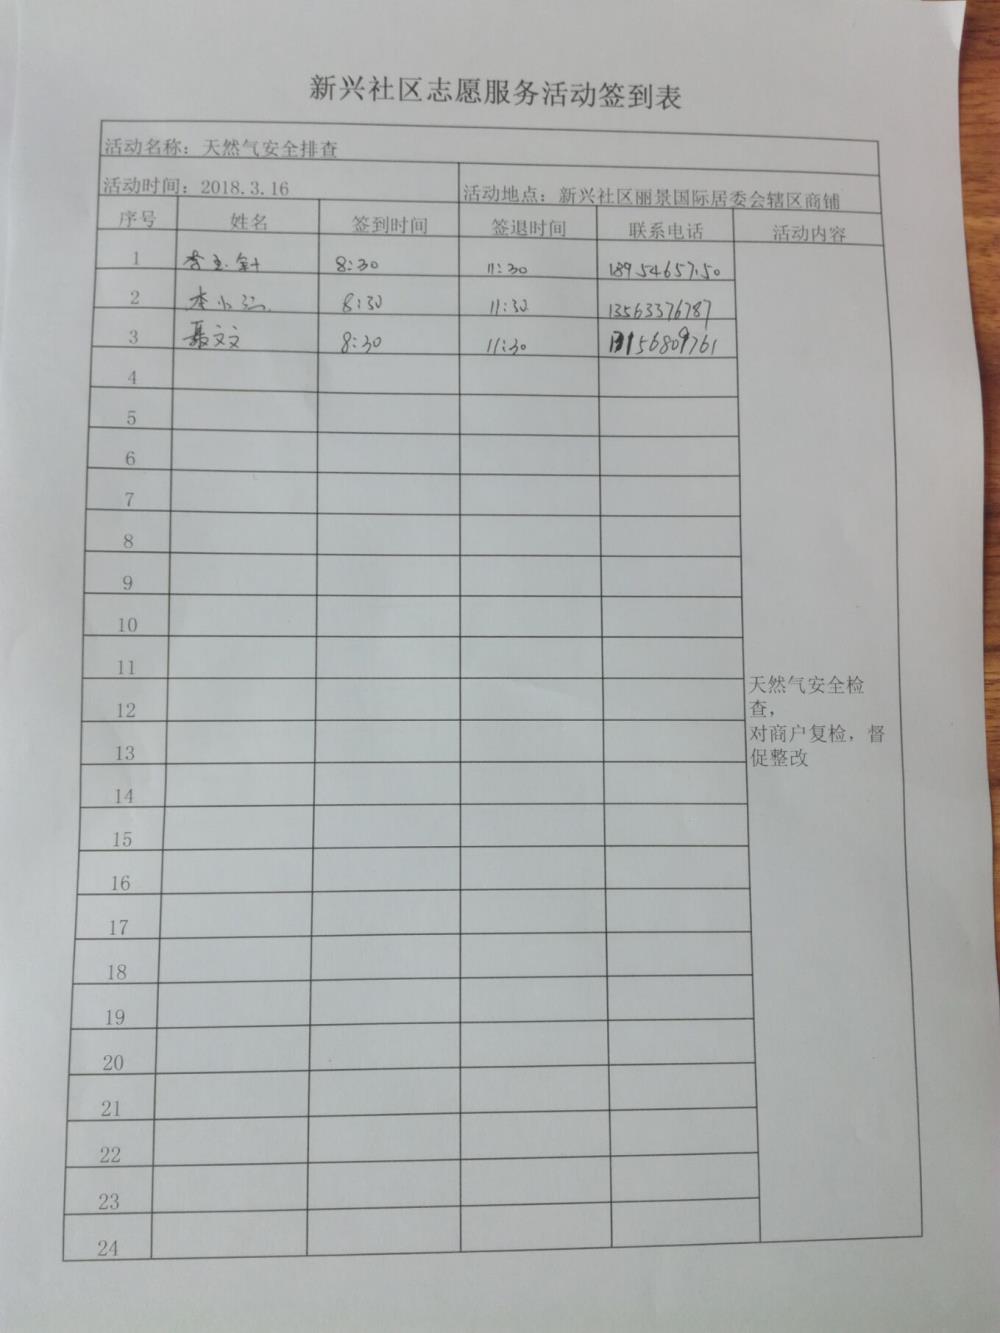 新兴社区志愿服务活动签到表
活动名称：天然气安全排查
活动时间：2018.3.16 活动地点：新兴社区丽景国际居委会辖区商铺
序号 姓名 签到时间 签退时间 联系电话 活动内容
1 8:30 11:30
2 李小 8:30 11:30 13563376787
3 聂文文 8:30 11:30
4
5
6
7
8
9
10
11
12
13
14
15
16
17
18
19
20
21
22
23
24
天然气安全检
查，
对商户复检，督
促整改